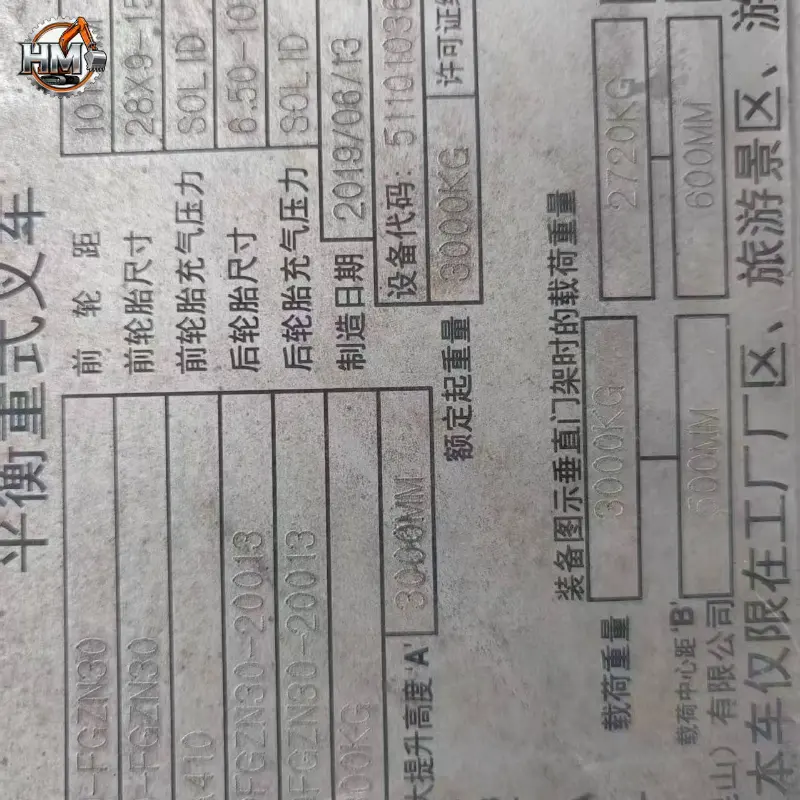 HM
平衡重式叉车
-FGZN30 前轮距 101
-FGZN30 前轮胎尺寸 28X9-15
410 前轮胎充气压力 SOLID
FGZN30-20013 后轮胎尺寸 6.50-10
FGZN30-20013 后轮胎充气压力 SOLID
00KG 制造日期 2019/06/13
大提升高度'A' 3000MM 设备代码: 51101036
额定起重量 3000KG 许可证
装备图示垂直门架时的载荷重量
载荷重量 3000KG 2720KG
载荷中心距'B' 500MM 600MM
山）有限公司
本车仅限在工厂厂区、旅游景区、游